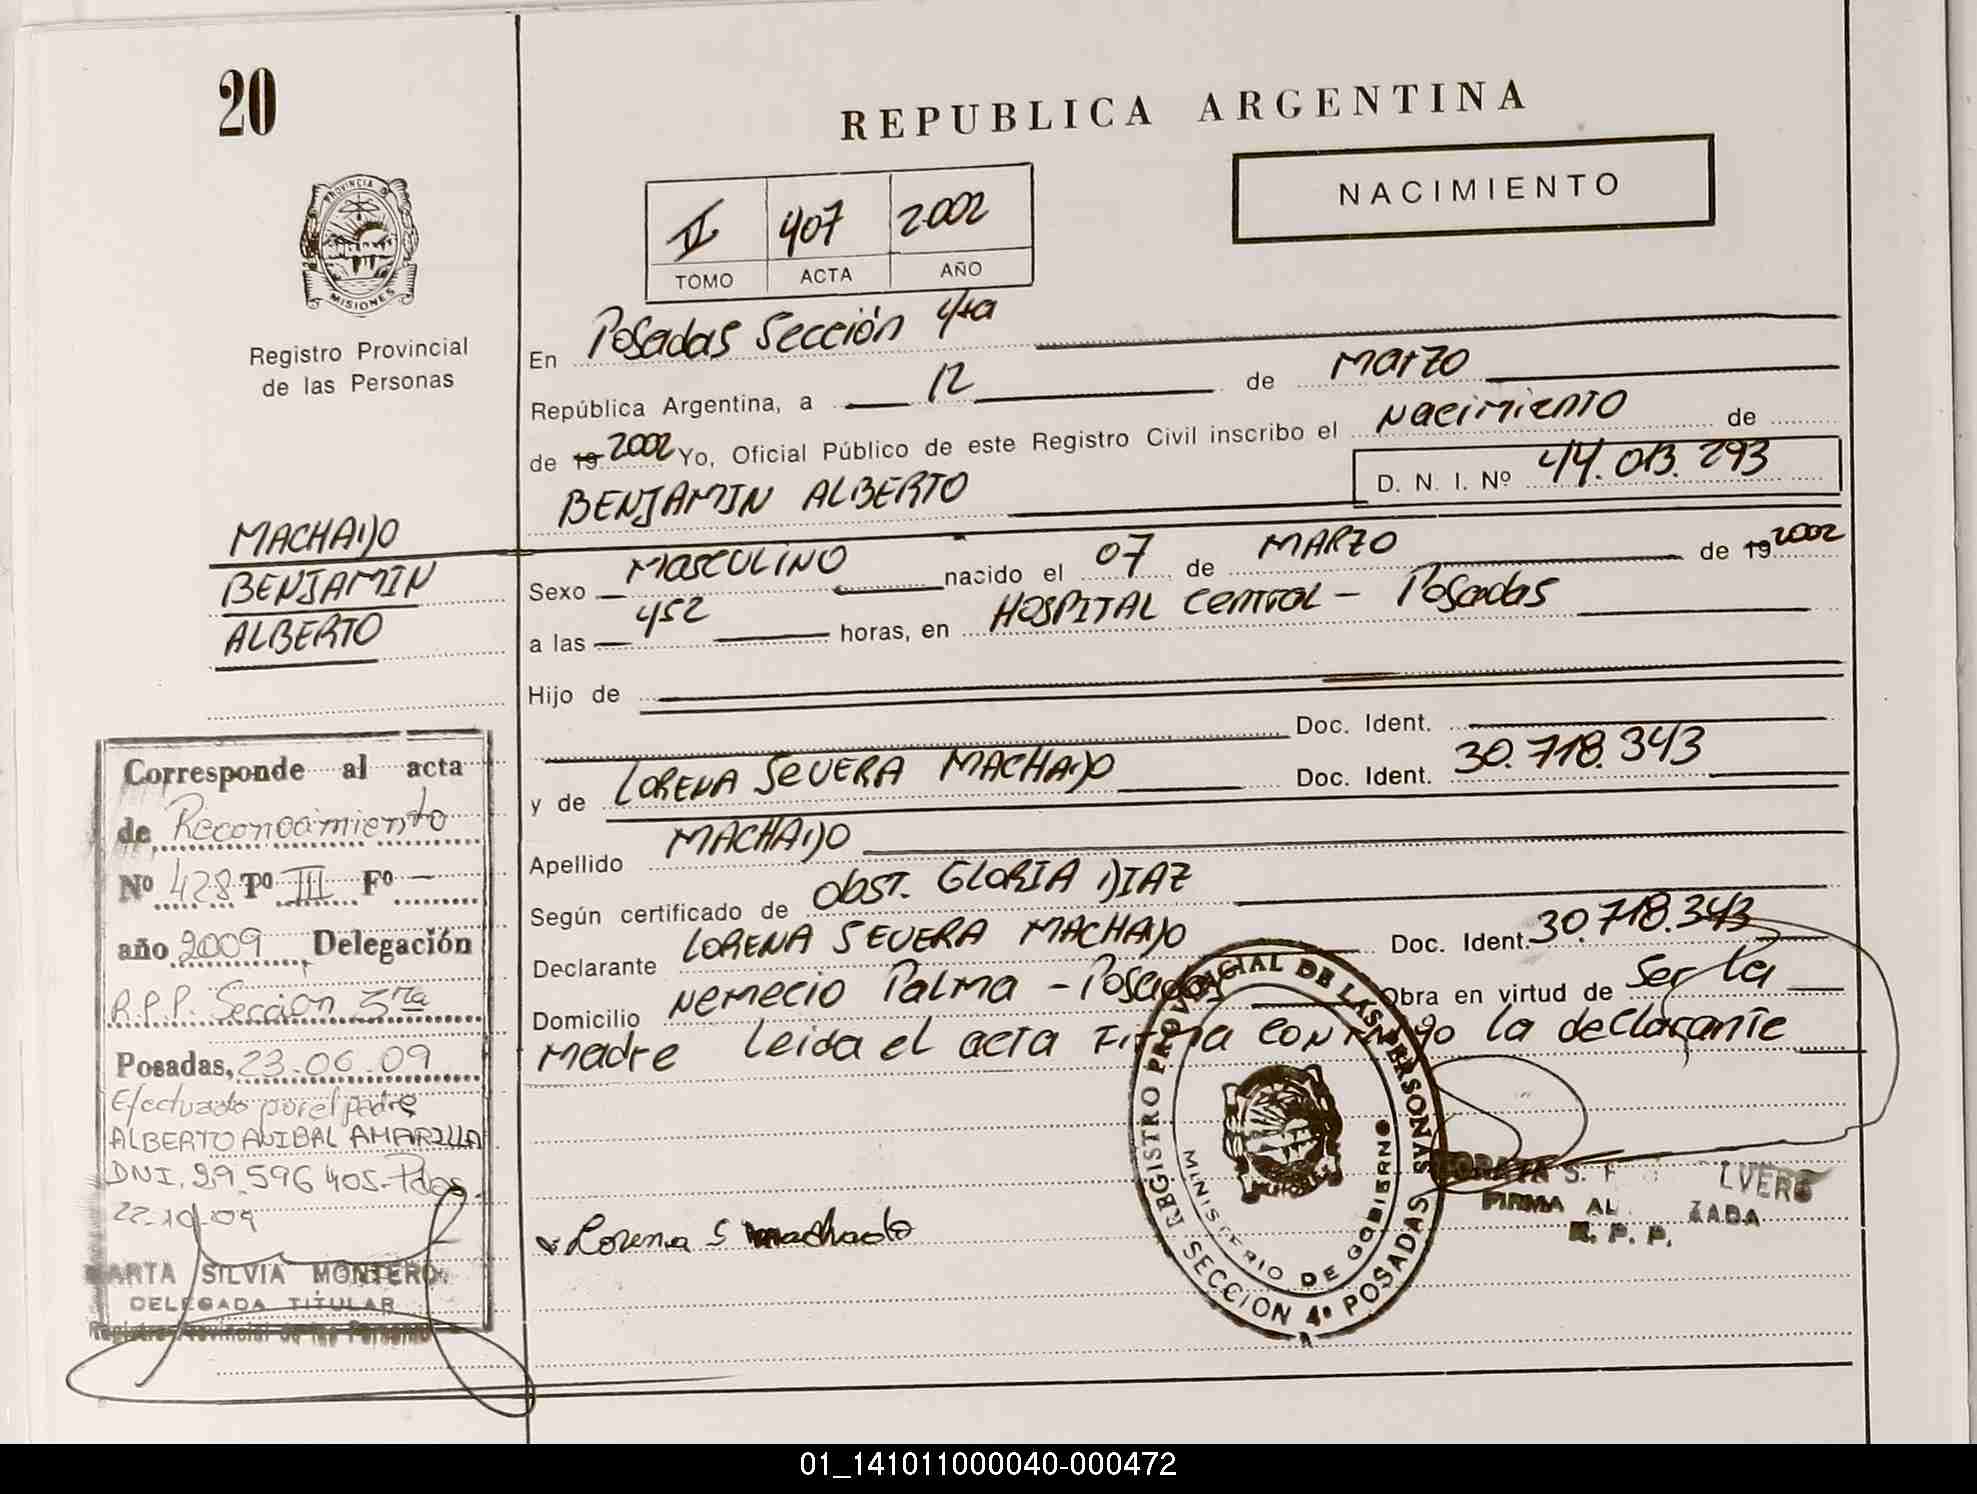 20
REPUBLICA ARGENTINA
NACIMIENTO
PROVINCIA D
MISIONES
Registro Provincial
de las Personas
II 407 2002
TOMO ACTA AÑO
En Posadas Sección 4ta
República Argentina, a 12 de Marzo
de 19 2002 Yo, Oficial Público de este Registro Civil inscribo el Nacimiento de
BENJAMIN ALBERTO D. N. I. Nº 44.013.293
MACHADO
BENJAMIN
ALBERTO
Sexo MASCULINO nacido el 07 de MARZO de 19 2002
a las 452 horas, en HOSPITAL CENTRAL - Posadas
Hijo de
Doc. Ident.
y de LORENA SEVERA MACHADO Doc. Ident. 30.718.343
Apellido MACHADO
Según certificado de Obst. GLORIA DIAZ
Declarante LORENA SEVERA MACHADO Doc. Ident. 30.718.343
Domicilio Nemecio Palma - Posadas Obra en virtud de Ser la
Madre Leida el acta Firma conmigo la declarante
Lorena S machado
REGISTRO PROVINCIAL DE LAS PERSONAS
MINISTERIO DE GOBIERNO
SECCION 4ª POSADAS
S. LVERO
FIRMA AL ZADA
R. P. P.
Corresponde al acta
de Reconocimiento
Nº 428 Tº III Fº —
año 2009 Delegación
R.P.P. Sección 3ra
Posadas, 23.06.09
Efectuado por el padre
ALBERTO ANIBAL AMARILLA
DNI. 29.596.405.-Pdas
22-10-09
MARTA SILVIA MONTERO
DELEGADA TITULAR
Registro Provincial de las Personas
01_141011000040-000472